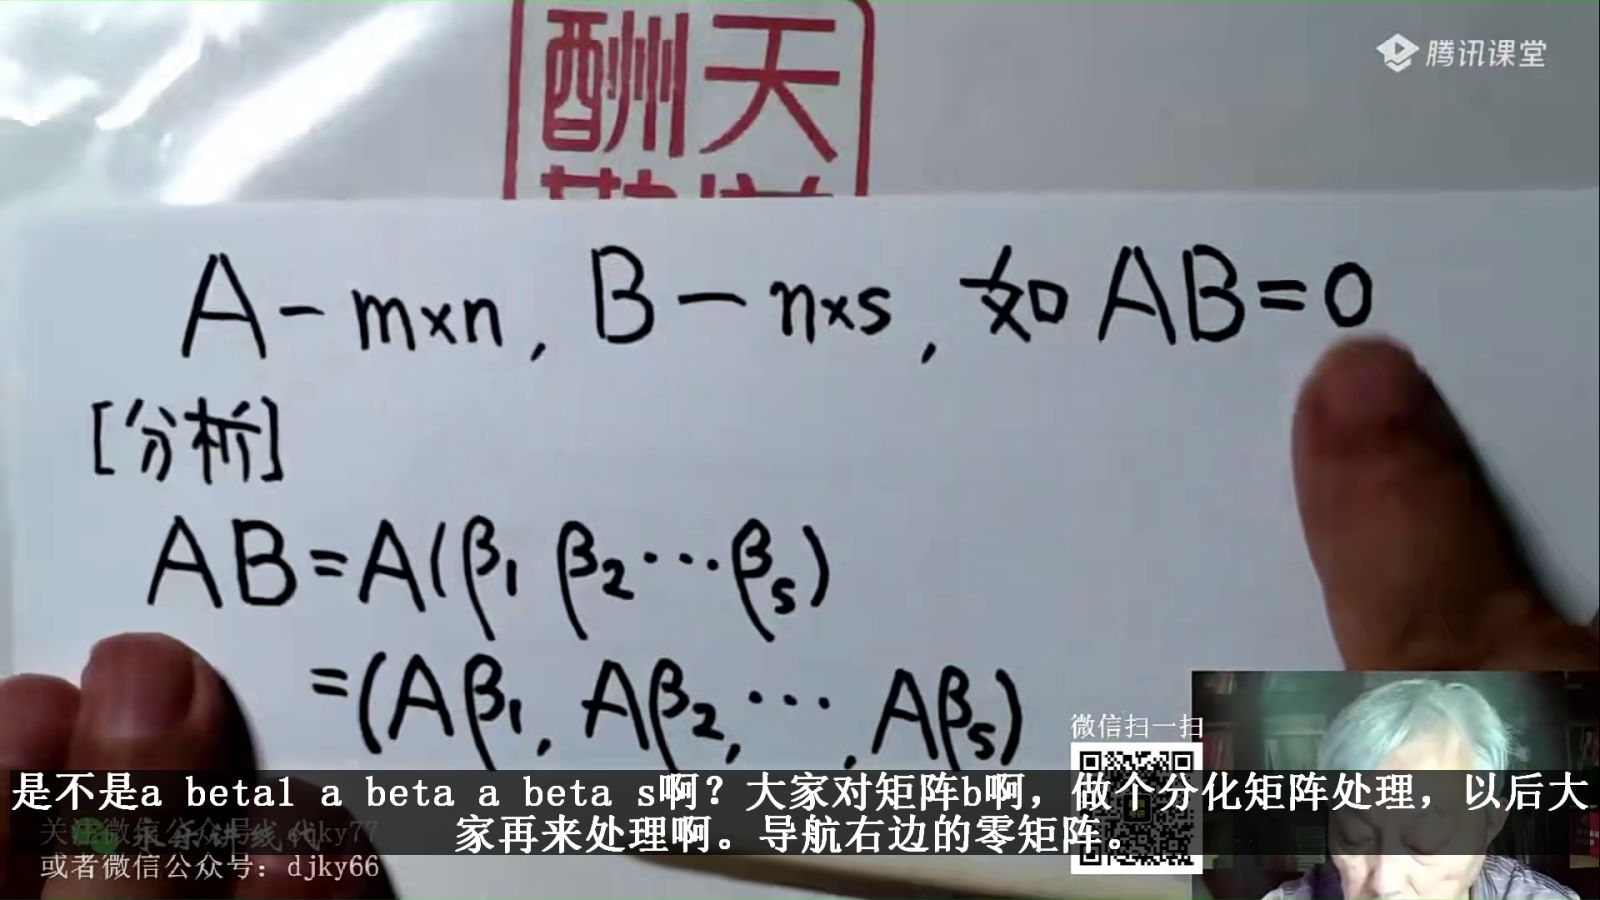 酬天
腾讯课堂
A - m×n , B - n×s , 如 AB=0
[分析]
AB=A(β1 β2 ··· βs)
=(Aβ1, Aβ2, ··· , Aβs)
微信扫一扫
是不是a beta1 a beta a beta s啊？大家对矩阵b啊，做个分化矩阵处理，以后大
家再来处理啊。导航右边的零矩阵。
或者微信公众号：djky66